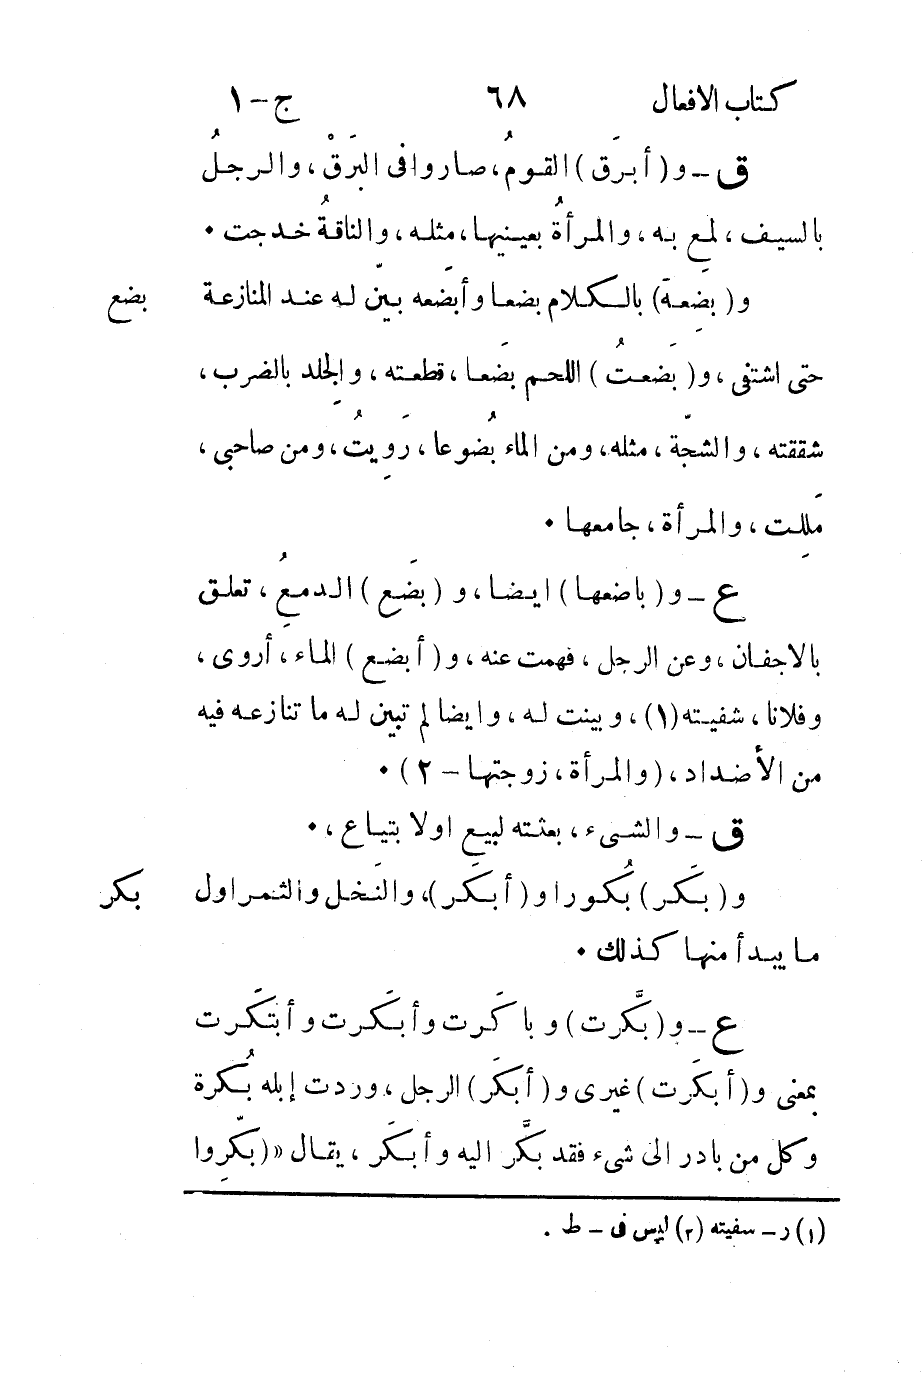 كتاب الافعال ٦٨ ج-١
ق - و ( أبرَق ) القومُ، صاروا فى البَرْق ، والرجلُ
بالسيف ، لمَع به ، والمرأةُ بعينيها ، مثله ، والناقةُ خدجت •
و ( بضِعَه ) بالكلام بضعا وأبضَعه بيّن له عند المنازعة بضع
حتى اشتفى ، و( بضَعتُ ) اللحم بَضَعا ، قطعته ، والجِلد بالضرب ،
شققته ، والشجّة ، مثله ، ومن الماء بُضُوعا ، رَوِيتُ ، ومن صاحبى ،
مَلِلت ، والمرأة ، جامعها •
ع - و ( باضعها ) ايضا ، و ( بضَع ) الدمعُ ، تعلق
بالاجفان ، وعن الرجل ، فهمت عنه ، و ( أبضع ) الماء ، أروى ،
وفلانا ، شفيته (١) ، وبينت له ، وايضا لم تبين له ما تنازعه فيه
من الأضداد ، ( والمرأة ، زوجتها - ٢ ) •
ق - والشىء ، بعثته لبيع اولا بتياع ، •
و ( بَكَر ) بُكُورا و ( أبكَر ) ، والنَخل والثمر اول بكر
ما يبدأ منها كذلك •
ع - و ( بكَّرت ) و باكَرت وأبكَرت وأبتكَرت
بمعنى و ( أبكَرت ) غيرى و ( أبكَر ) الرجل ، وردت إبله بُكرة
وكل من بادر الى شىء فقد بكَّر اليه وأبكَر ، يقال « ( بكِّروا
(١) ر - سفيته (٢) ليس فى - ط .